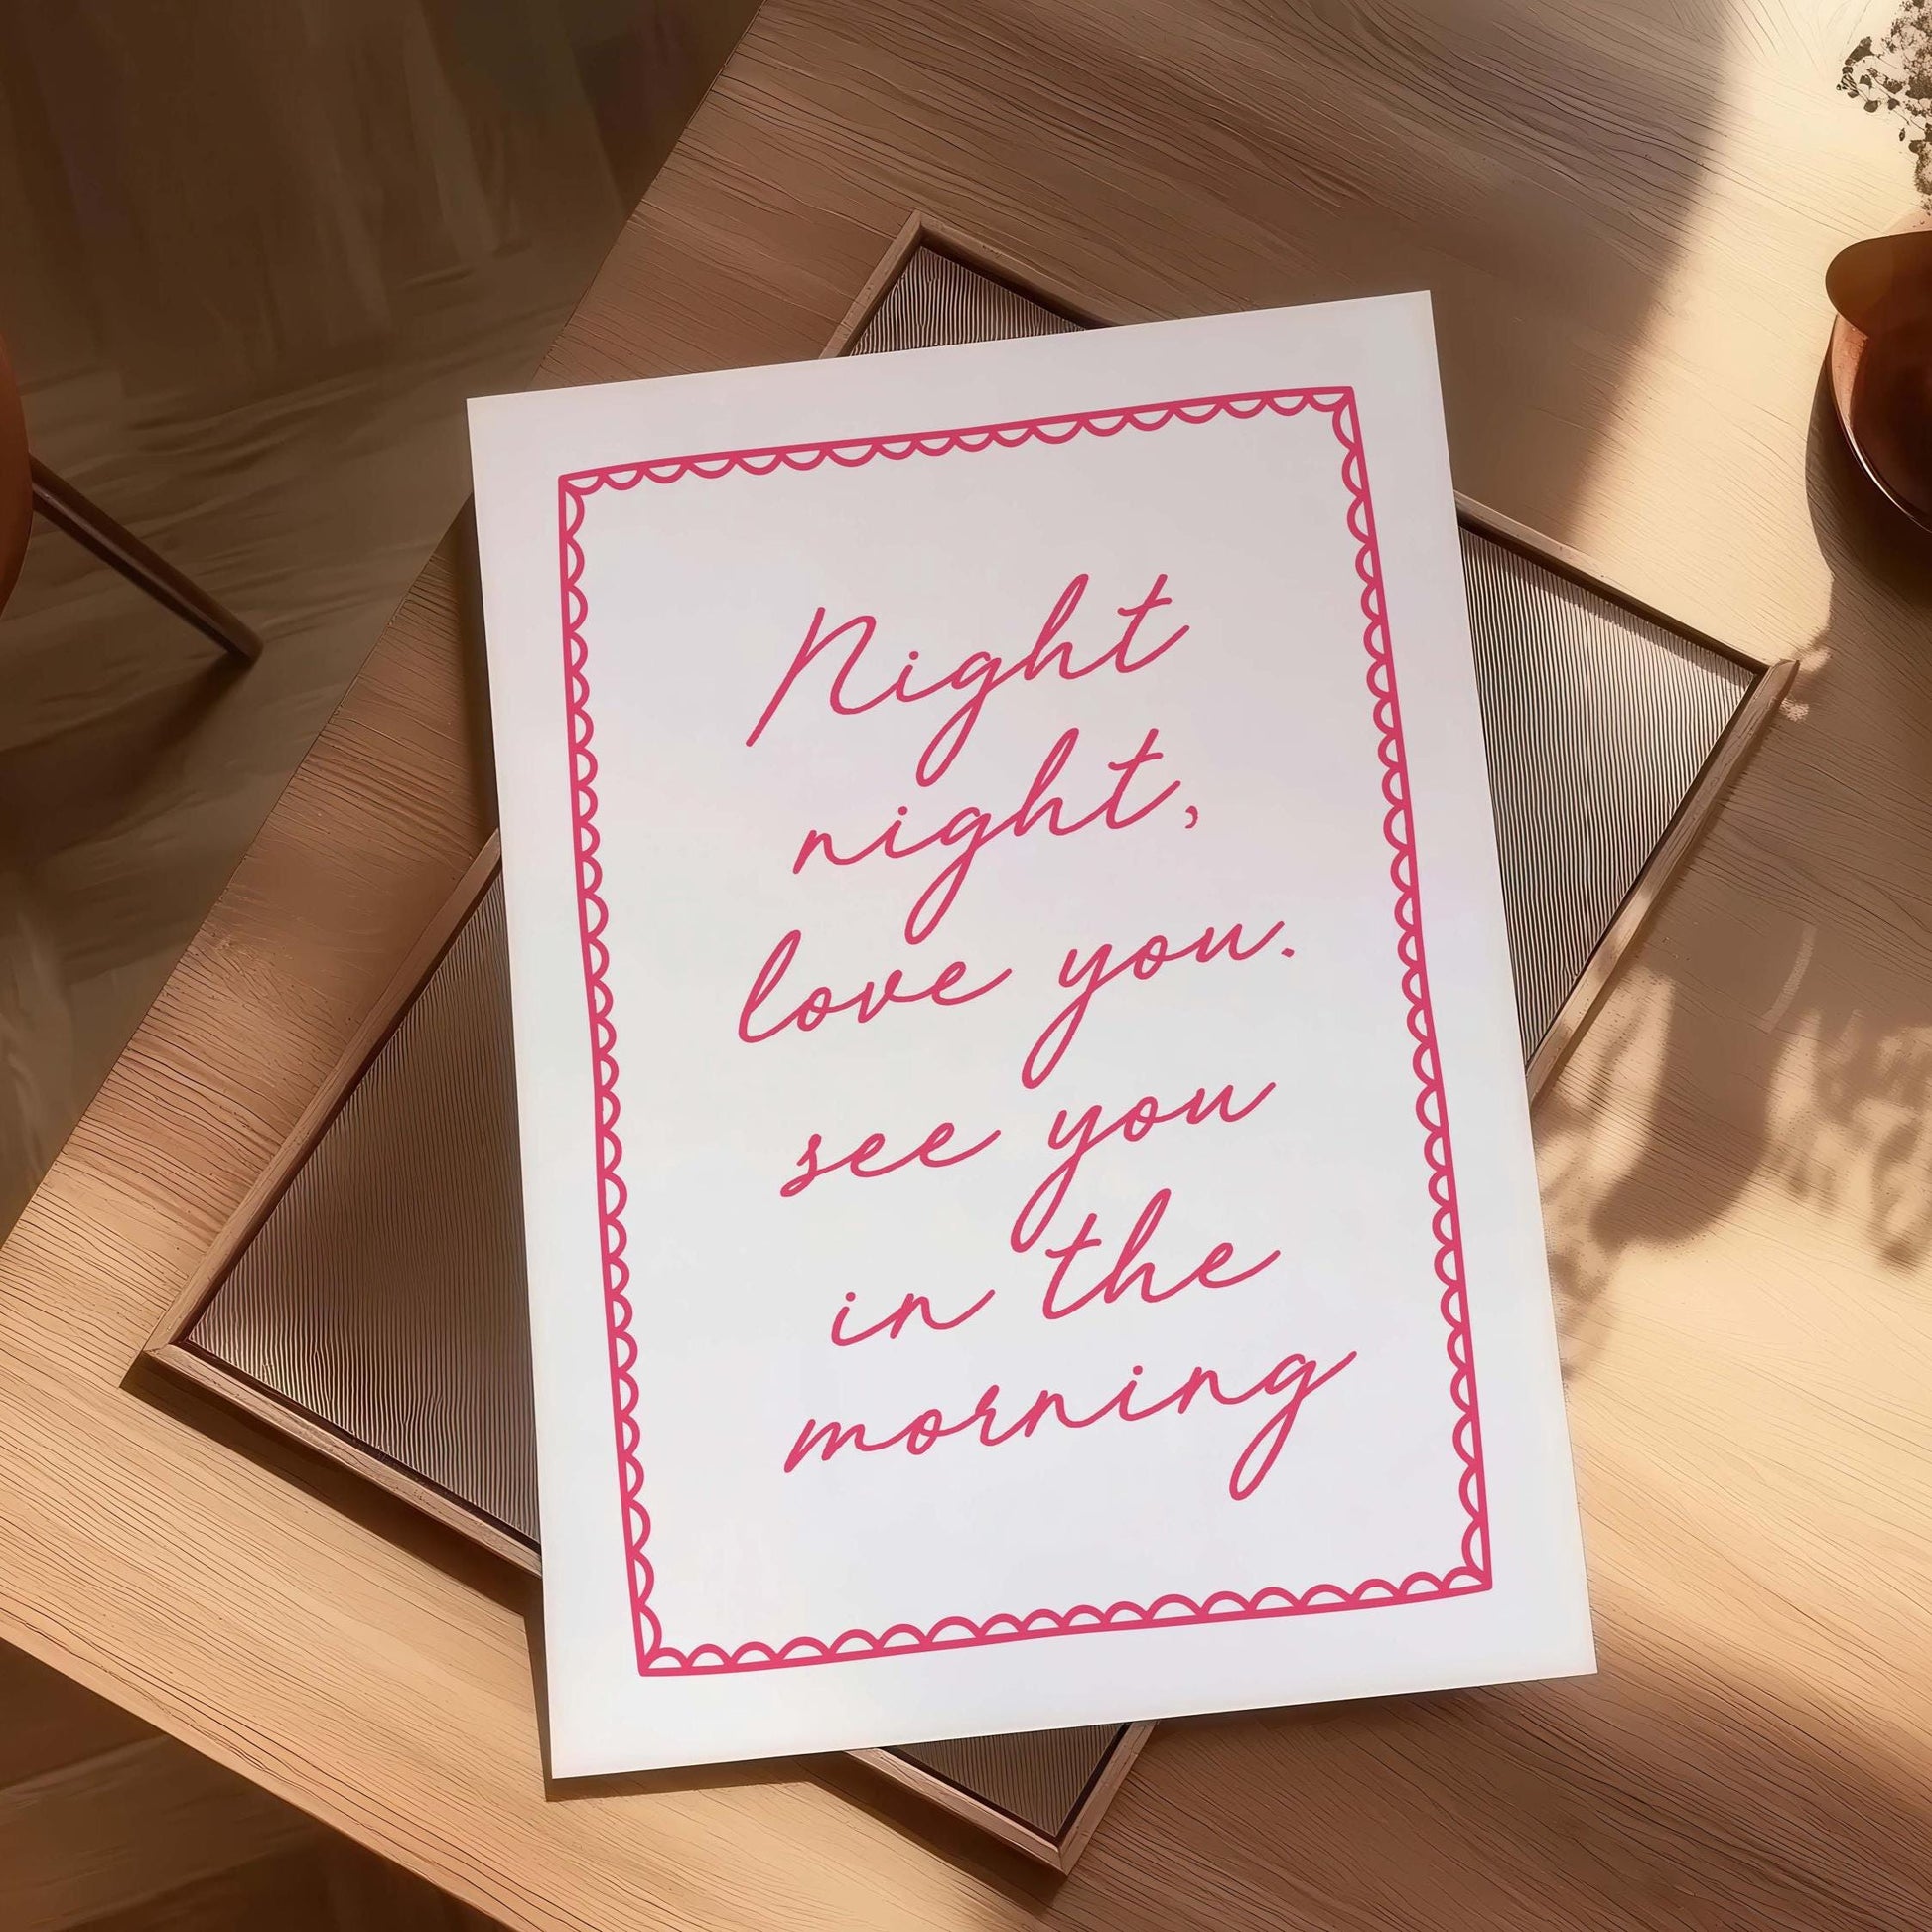 Night
night,
love you.
see you
in the
morning